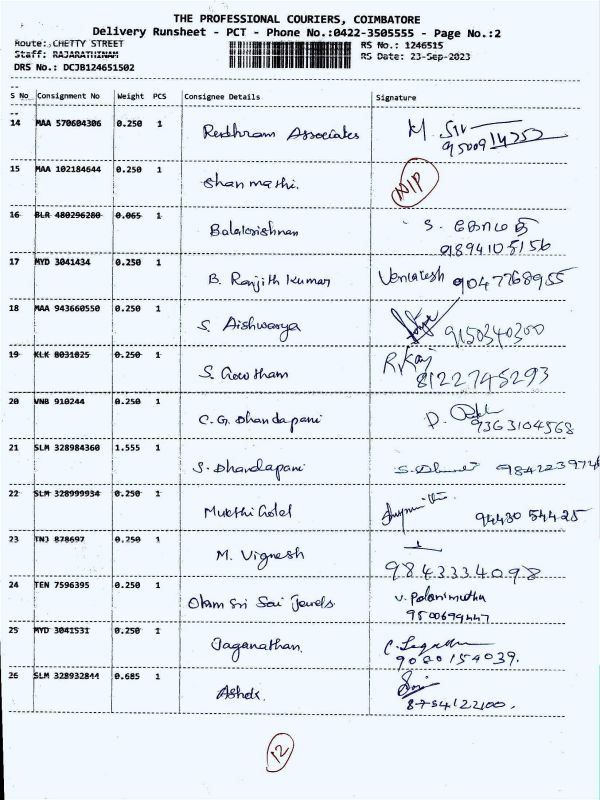 THE PROFESSIONAL COURIERS, COIMBATORE
Delivery Runsheet - PCT - Phone No.:0422-3505555 - Page No.:2
Route: CHETTY STREET RS No.: 1246515
Staff: RAJARATHINAM RS Date: 23-Sep-2023
DRS No.: DCJB124651502
S No Consignment No Weight PCS Consignee Details Signature
14 MAA 570604306 0.250 1 Redhram Associates M. Siv
9500914253
15 MAA 102184644 0.250 1 Shanmathi. NIP
16 BLR 480296280 0.065 1 Balakrishnan S. கோமதி
9894105156
17 MYD 3041434 0.250 1 B. Ranjith Kumar Vencatesh 9047768955
18 MAA 943660550 0.250 1 S. Aishwarya 9150340300
19 KLK 8031025 0.250 1 S. Gowtham R. Kaj
8122745293
20 VNB 910244 0.250 1 C.G. Dhandapani D.
9363104568
21 SLM 328984360 1.555 1 S. Dhandapani 984223974
22 SLM 328999934 0.250 1 Mukthi Gold 94430 54425
23 TNJ 878697 0.250 1 M. Vignesh
9843334098
24 TEN 7596395 0.250 1 Olam Sri Sai Jewels V. Palanimuthu
9500699447
25 MYD 3041531 0.250 1 Jaganathan. C.
9080154039.
26 SLM 328932844 0.685 1 Ashok
8754122100.
12